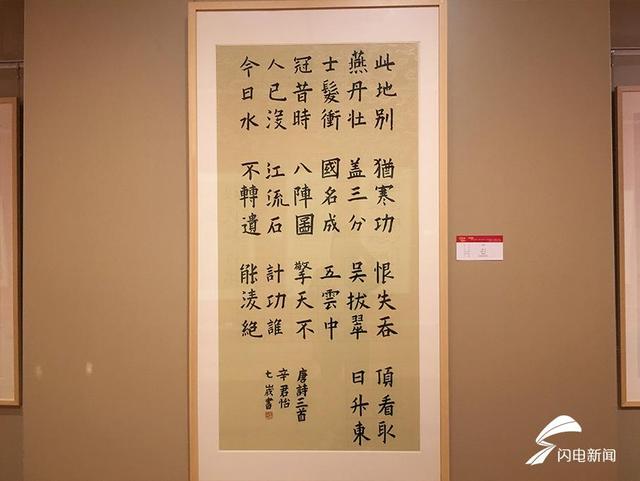 此地别
燕丹壮
士髮衝
冠昔時
人已沒
今日水
猶寒功
盖三分
國名成
八陣圖
江流石
不轉遺
恨失吞
吴拔翠
五雲中
擎天不
計功誰
能淩絕
頂看取
日升東
唐詩三首
辛君怡
七歲書
闪电新闻